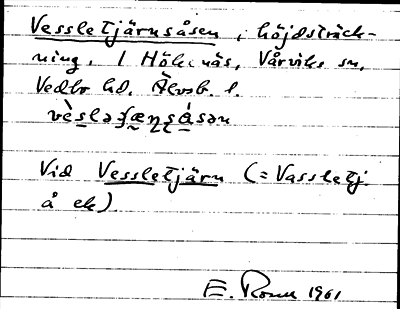 Vessletjärnsåsen, höjdsträck-
ning, I Hölesnäs, Vårviks sn,
Vedbo hd. Älvsb. l.
Vid Vessletjärn (= Vassletj.
å ek)
E. 1961